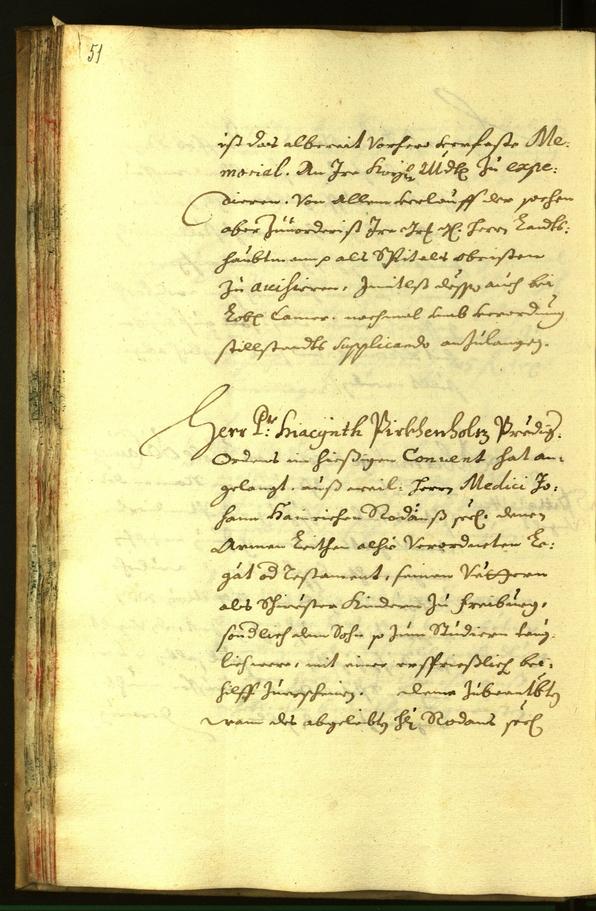 51
ist das albereit vorhero verfaste Me-
morial. An Ire Kayl. Mtt. zu expe-
dieren. Von Allem verlauff der sachen
aber zuuorderist Ire Herrn Landts-
haubtmann p als Spitals obristen
zu avisieren, Inmitlst desse auch bei
Lobl. Camer. nochmal umb verordnung
stillstandts supplicando anzulangen.
Herr Pr. Hiacynth Pirkhenholz Predig.
Ordens im hießigen Convent hat an-
gelangt, auß weil: Herrn Medici Jo-
hann Hainrichen Rodauß seel: denen
Armen Leithen alhie verordneten Le-
gat od Testament, seinen Vettern
als Schwester Kindern zu Freiburg,
sondlich dem Sohn p zum Studieren taug-
lich were, mit einer ersprießlich bei-
hilff zuerscheinen. Deme zubeantwbten
wann des abgeleibten H. Rodaus seel